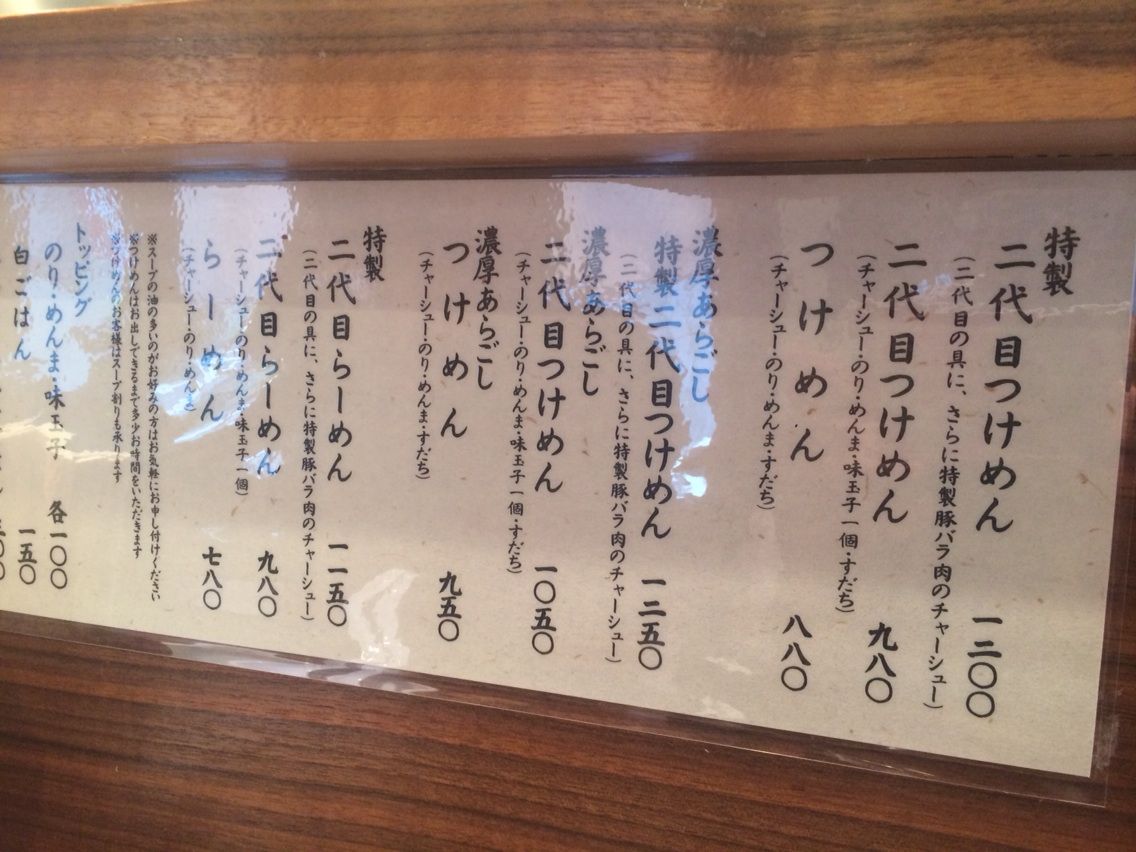 特製
二代目つけめん 一二〇〇
（二代目の具に、さらに特製豚バラ肉のチャーシュー）
二代目つけめん 九八〇
（チャーシュー・のり・めんま・味玉子一個・すだち）
つけめん 八八〇
（チャーシュー・のり・めんま・すだち）
濃厚あらごし
特製二代目つけめん 一二五〇
（二代目の具に、さらに特製豚バラ肉のチャーシュー）
濃厚あらごし
二代目つけめん 一〇五〇
（チャーシュー・のり・めんま・味玉子一個・すだち）
濃厚あらごし
つけめん 九五〇
（チャーシュー・のり・めんま・すだち）
特製
二代目らーめん 一一五〇
（二代目の具に、さらに特製豚バラ肉のチャーシュー）
二代目らーめん 九八〇
（チャーシュー・のり・めんま・味玉子一個）
らーめん 七八〇
（チャーシュー・のり・めんま）
※スープの油の多いのがお好みの方はお気軽にお申し付けください
※つけめんはお出しできるまで多少お時間をいただきます
※つけめんのお客様はスープ割りも承ります
トッピング
のり・めんま・味玉子 各一〇〇
白ごはん 一五〇